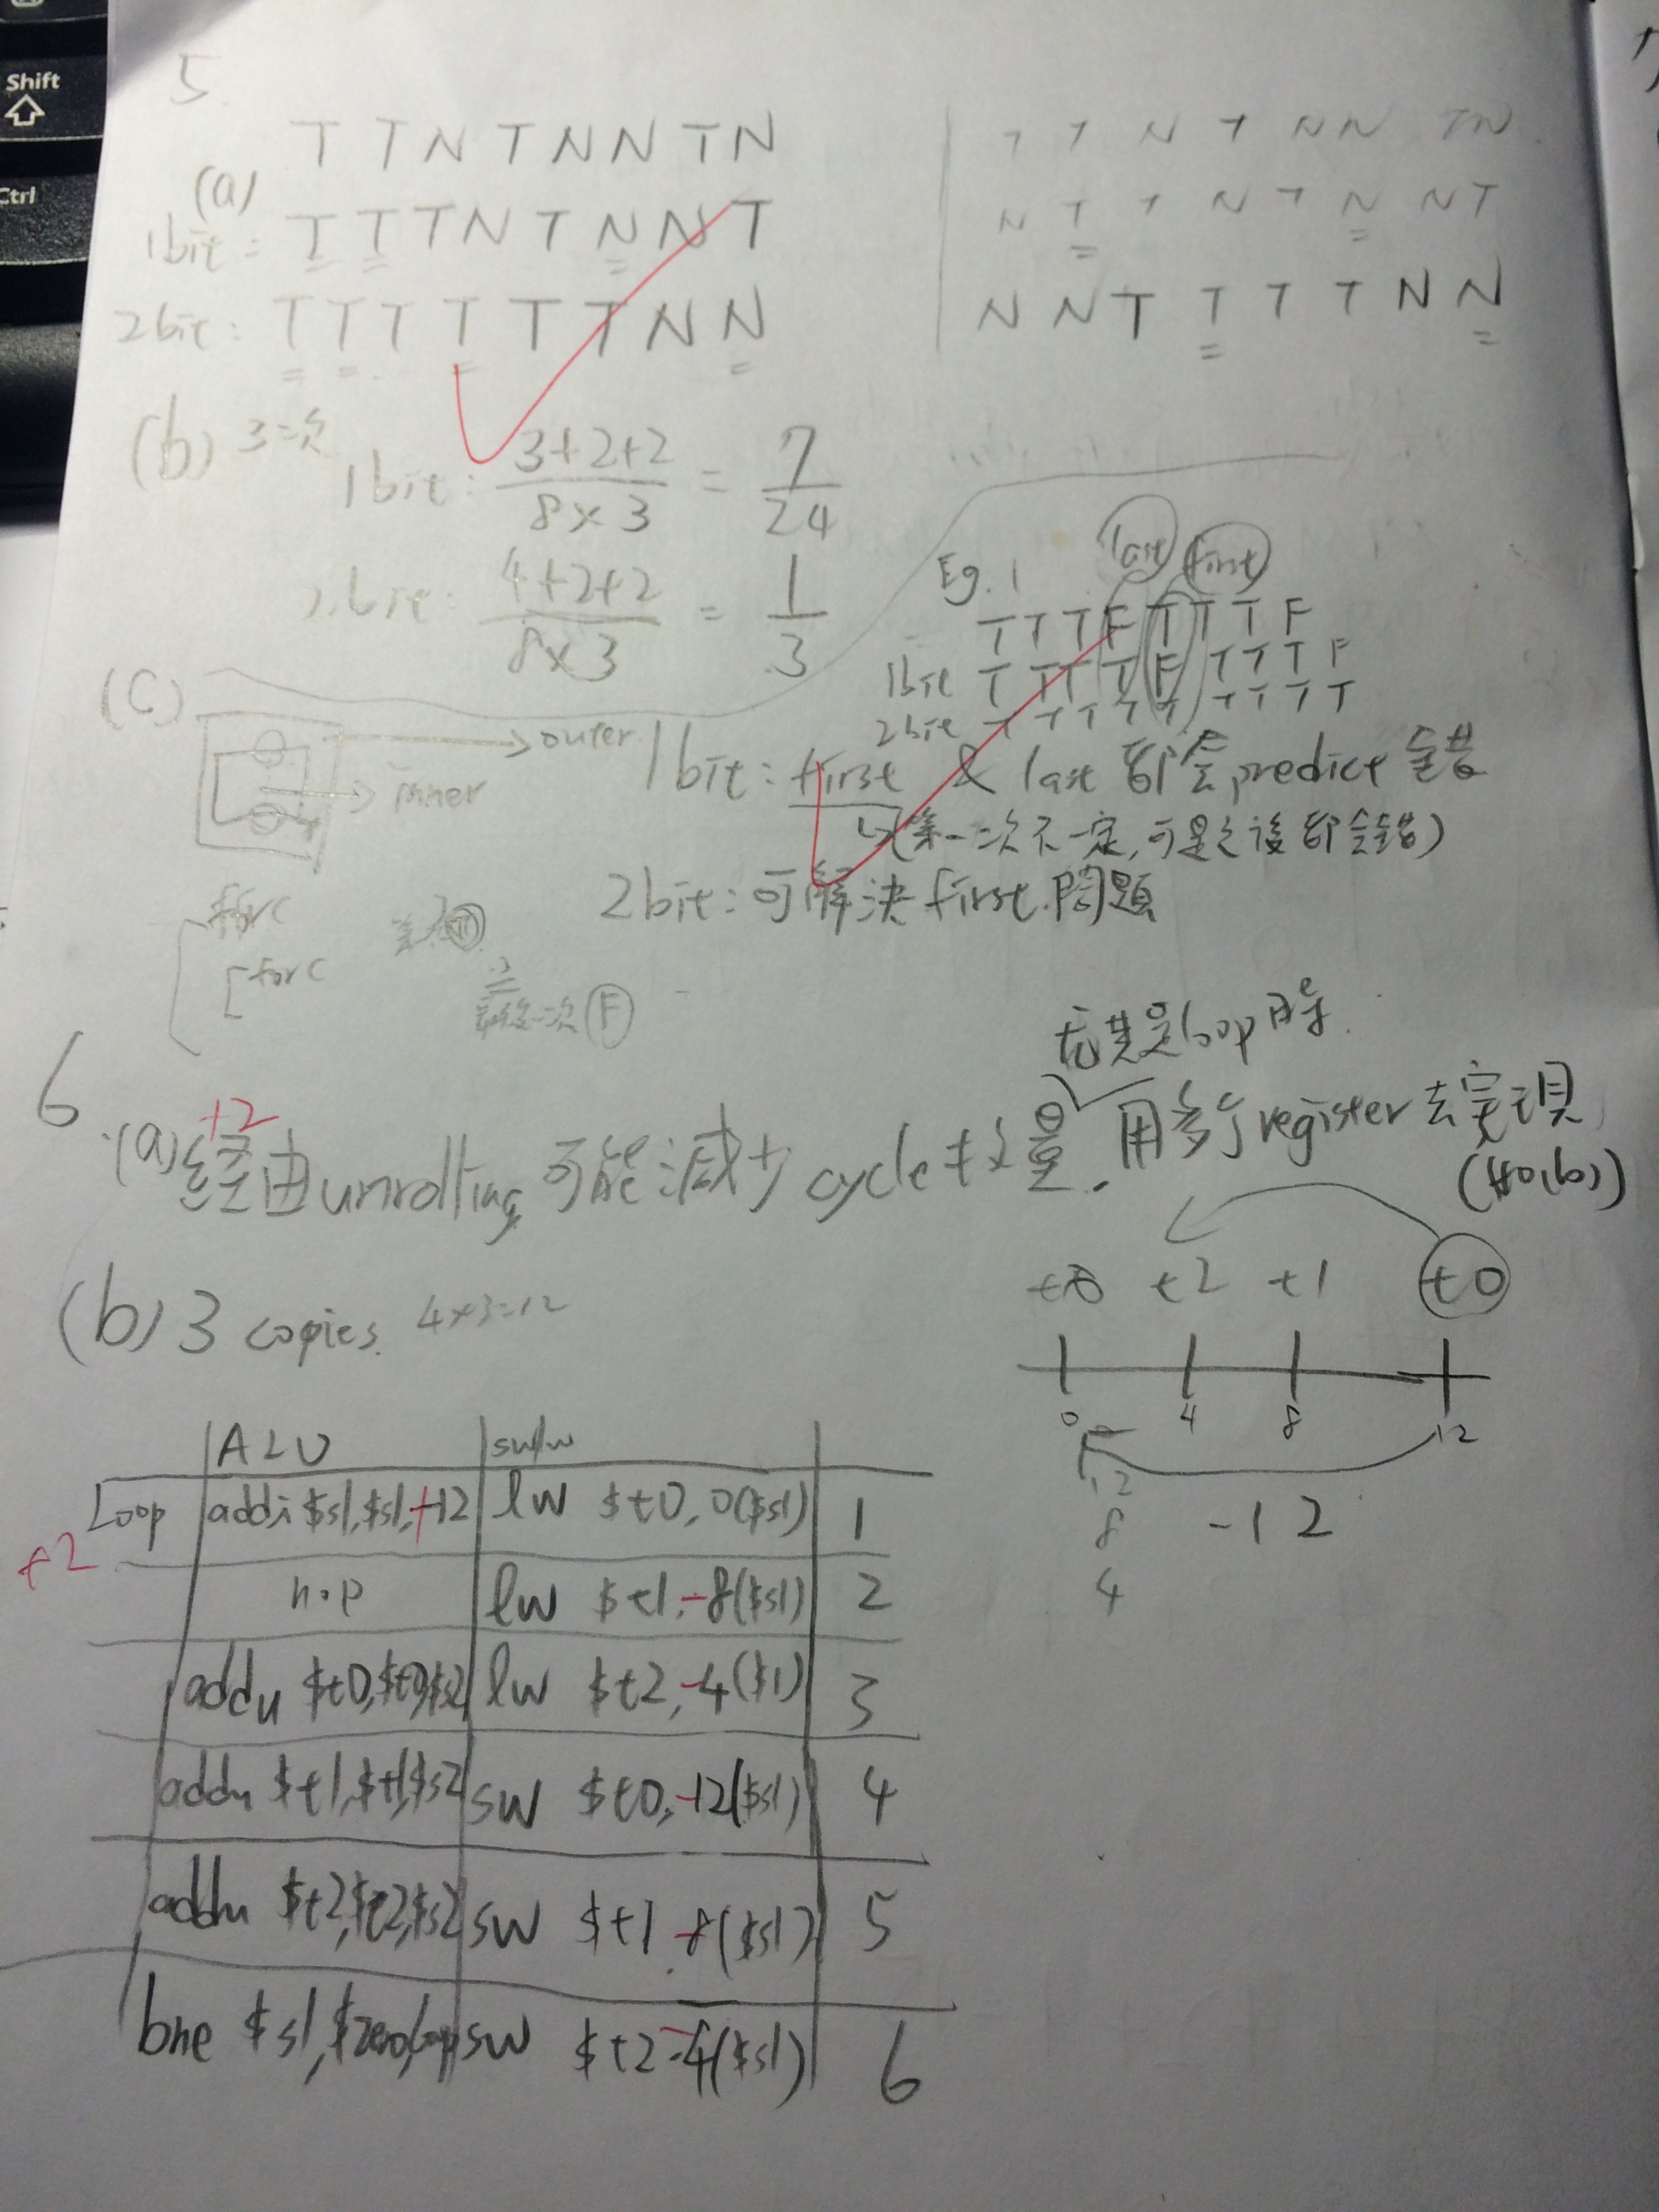 Shift
Ctrl
5
T T N T N N T N
(a)
1bit: T T T N T N N T
2bit: T T T T T T N N
T T N T N N T N
N T T N T N N T
N N T T T T N N
(b) 3次
1bit: 3+2+2 / 8×3 = 7/24
2bit: 4+2+2 / 8×3 = 1/3
Eg. 1 last first
T T T F T T T F
1bit T T T T F T T T F
2bit T T T T T T T T T
(c)
outer
inner
1bit: first & last 都會predict 錯
↳(第一次不一定,可是之後都會錯)
2bit: 可解決first 問題
for(
for(
最後一次 F
6
+2
尤其是loop時
(a)經由unrolling可能減少cycle數量. 用多了register去實現
(b) 3 copies. 4×3=12
t0 t2 t1 t0
0 4 8 12
12
8 -12
4
ALU sw/lw
Loop addi $s1,$s1,+12 lw $t0, 0($s1) 1
+2
nop lw $t1,-8($s1) 2
addu $t0,$t0,$s2 lw $t2,-4($1) 3
addu $t1,$t1,$s2 sw $t0,-12($s1) 4
addu $t2,$t2,$s2 sw $t1 -8($s1) 5
bne $s1,$zero,loop sw $t2 -4($s1) 6